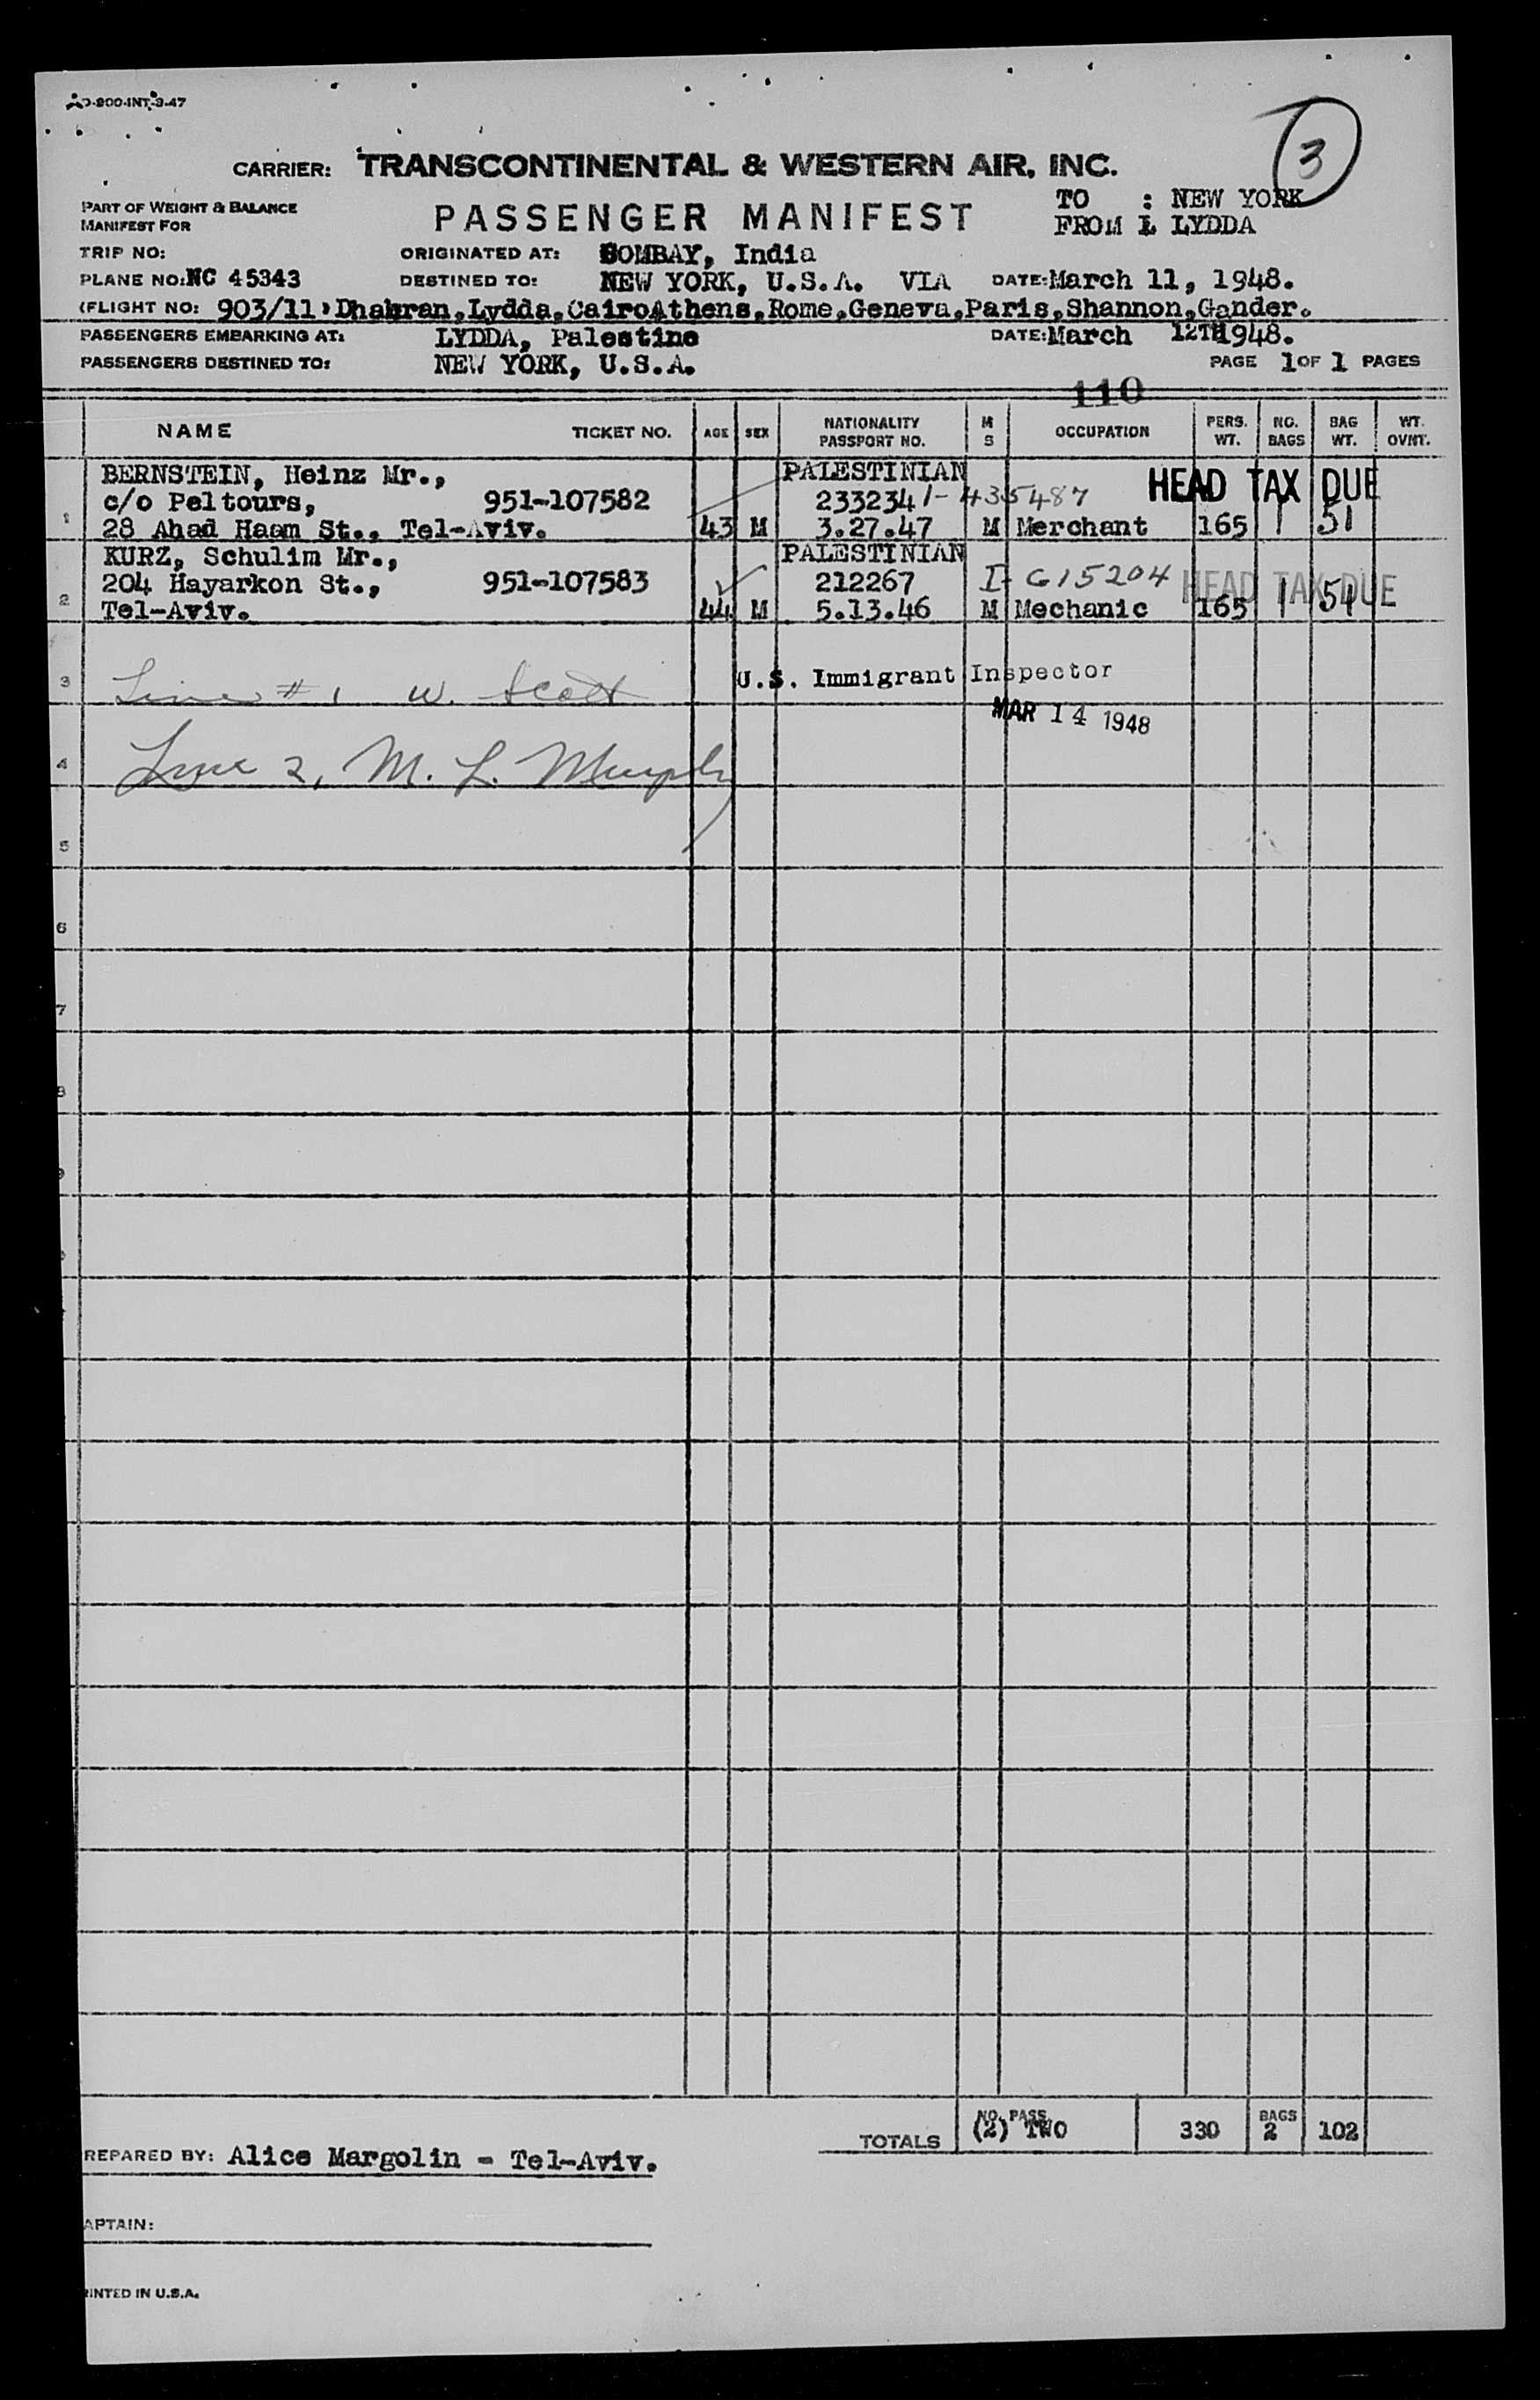 O-800-INT-3-47
3
CARRIER: TRANSCONTINENTAL & WESTERN AIR, INC.
PART OF WEIGHT & BALANCE
MANIFEST FOR
PASSENGER MANIFEST
TO : NEW YORK
FROM L LYDDA
TRIP NO:
ORIGINATED AT: BOMBAY, India
PLANE NO: NC 45343
DESTINED TO: NEW YORK, U.S.A. VIA DATE: March 11, 1948.
(FLIGHT NO: 903/11) Dhahran, Lydda, Cairo Athens, Rome, Geneva, Paris, Shannon, Gander.
PASSENGERS EMBARKING AT: LYDDA, Palestine DATE: March 12TH 1948.
PASSENGERS DESTINED TO: NEW YORK, U.S.A. PAGE 1 OF 1 PAGES
110
NAME TICKET NO. AGE SEX NATIONALITY PASSPORT NO. M S OCCUPATION PERS. WT. NO. BAGS BAG WT. WT. OVNT.
BERNSTEIN, Heinz Mr., PALESTINIAN HEAD TAX DUE
c/o Peltours, 951-107582 233234 I-435487
1 28 Ahad Haam St., Tel-Aviv. 43 M 3.27.47 M Merchant 165 1 51
KURZ, Schulim Mr., PALESTINIAN
204 Hayarkon St., 951-107583 212267 I-615204 HEAD TAX DUE
2 Tel-Aviv. 44 M 5.13.46 M Mechanic 165 1 51
3 Line #1 W. Scott U.S. Immigrant Inspector
MAR 14 1948
4 Line 2, M. L. Murphy
5
6
7
8
9
TOTALS NO. PASS. (2) TWO 330 BAGS 2 102
REPARED BY: Alice Margolin - Tel-Aviv.
APTAIN:
RINTED IN U.S.A.